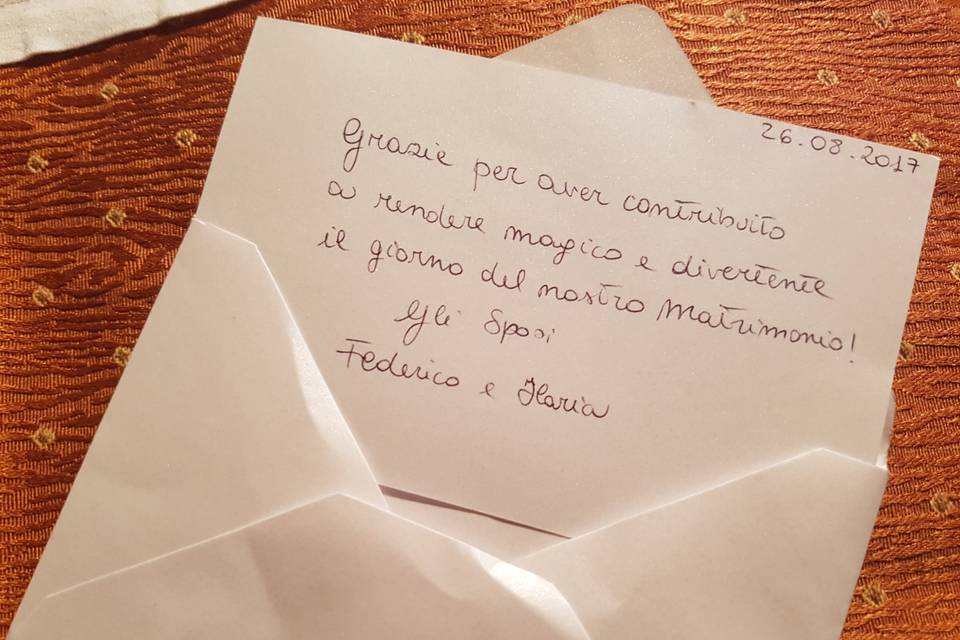 26.08.2017
Grazie per aver contribuito
a rendere magico e divertente
il giorno del nostro Matrimonio!
Gli Sposi
Federico e Ilaria